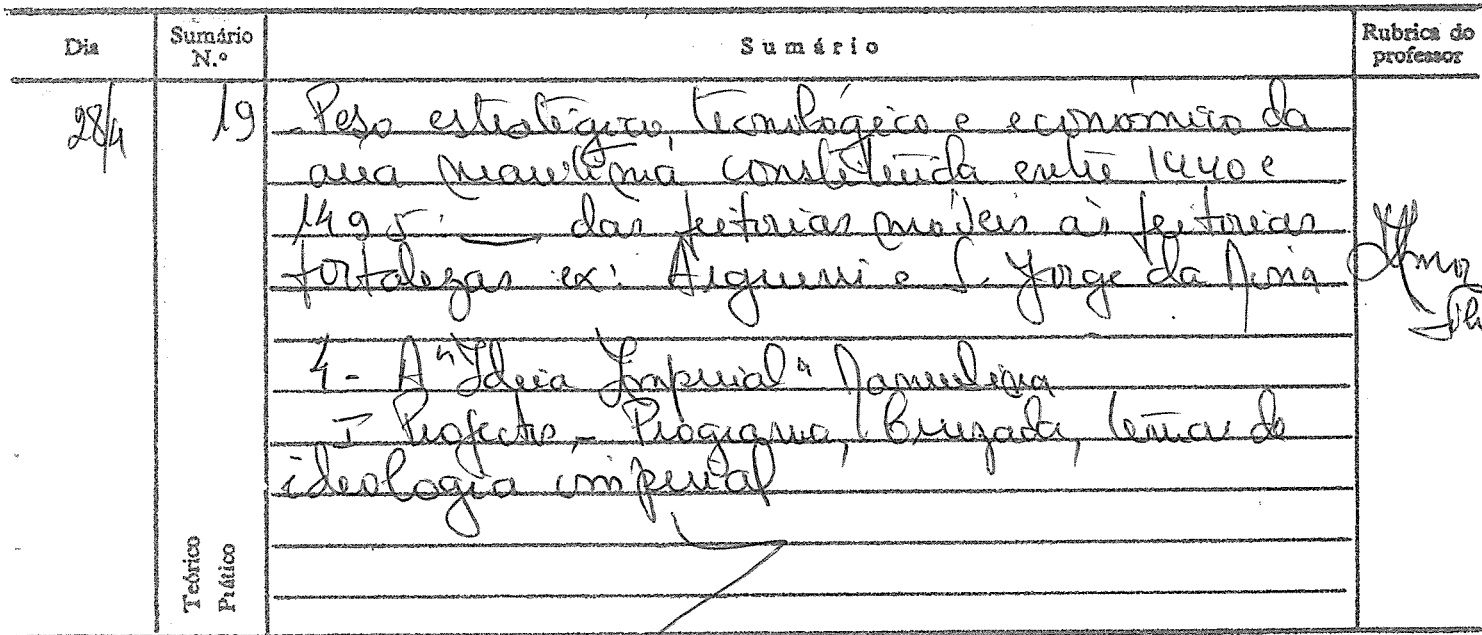 Dia Sumário N.º Sumário Rubrica do professor
28/4 19 - Peso estratégico, tecnológico e económico da
área marítima constituída entre 1440 e
1495: — das feitorias móveis às feitorias
fortalezas ex: Arguim e S. Jorge da Mina
4 - A "Ideia Imperial" Manuelina
I Projectos, - Programa, Cruzada, de
ideologia imperial
Teórico
Prático